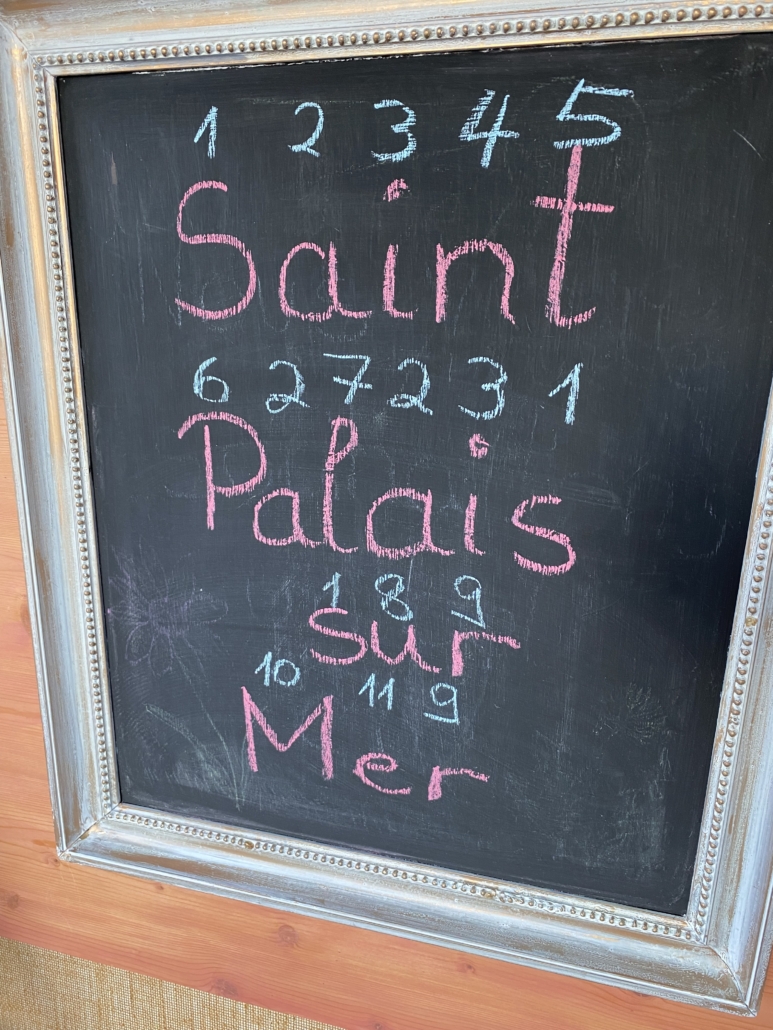 1 2 3 4 5
Saint
6 2 7 2 3 1
Palais
1 8 9
sur
10 11 9
Mer